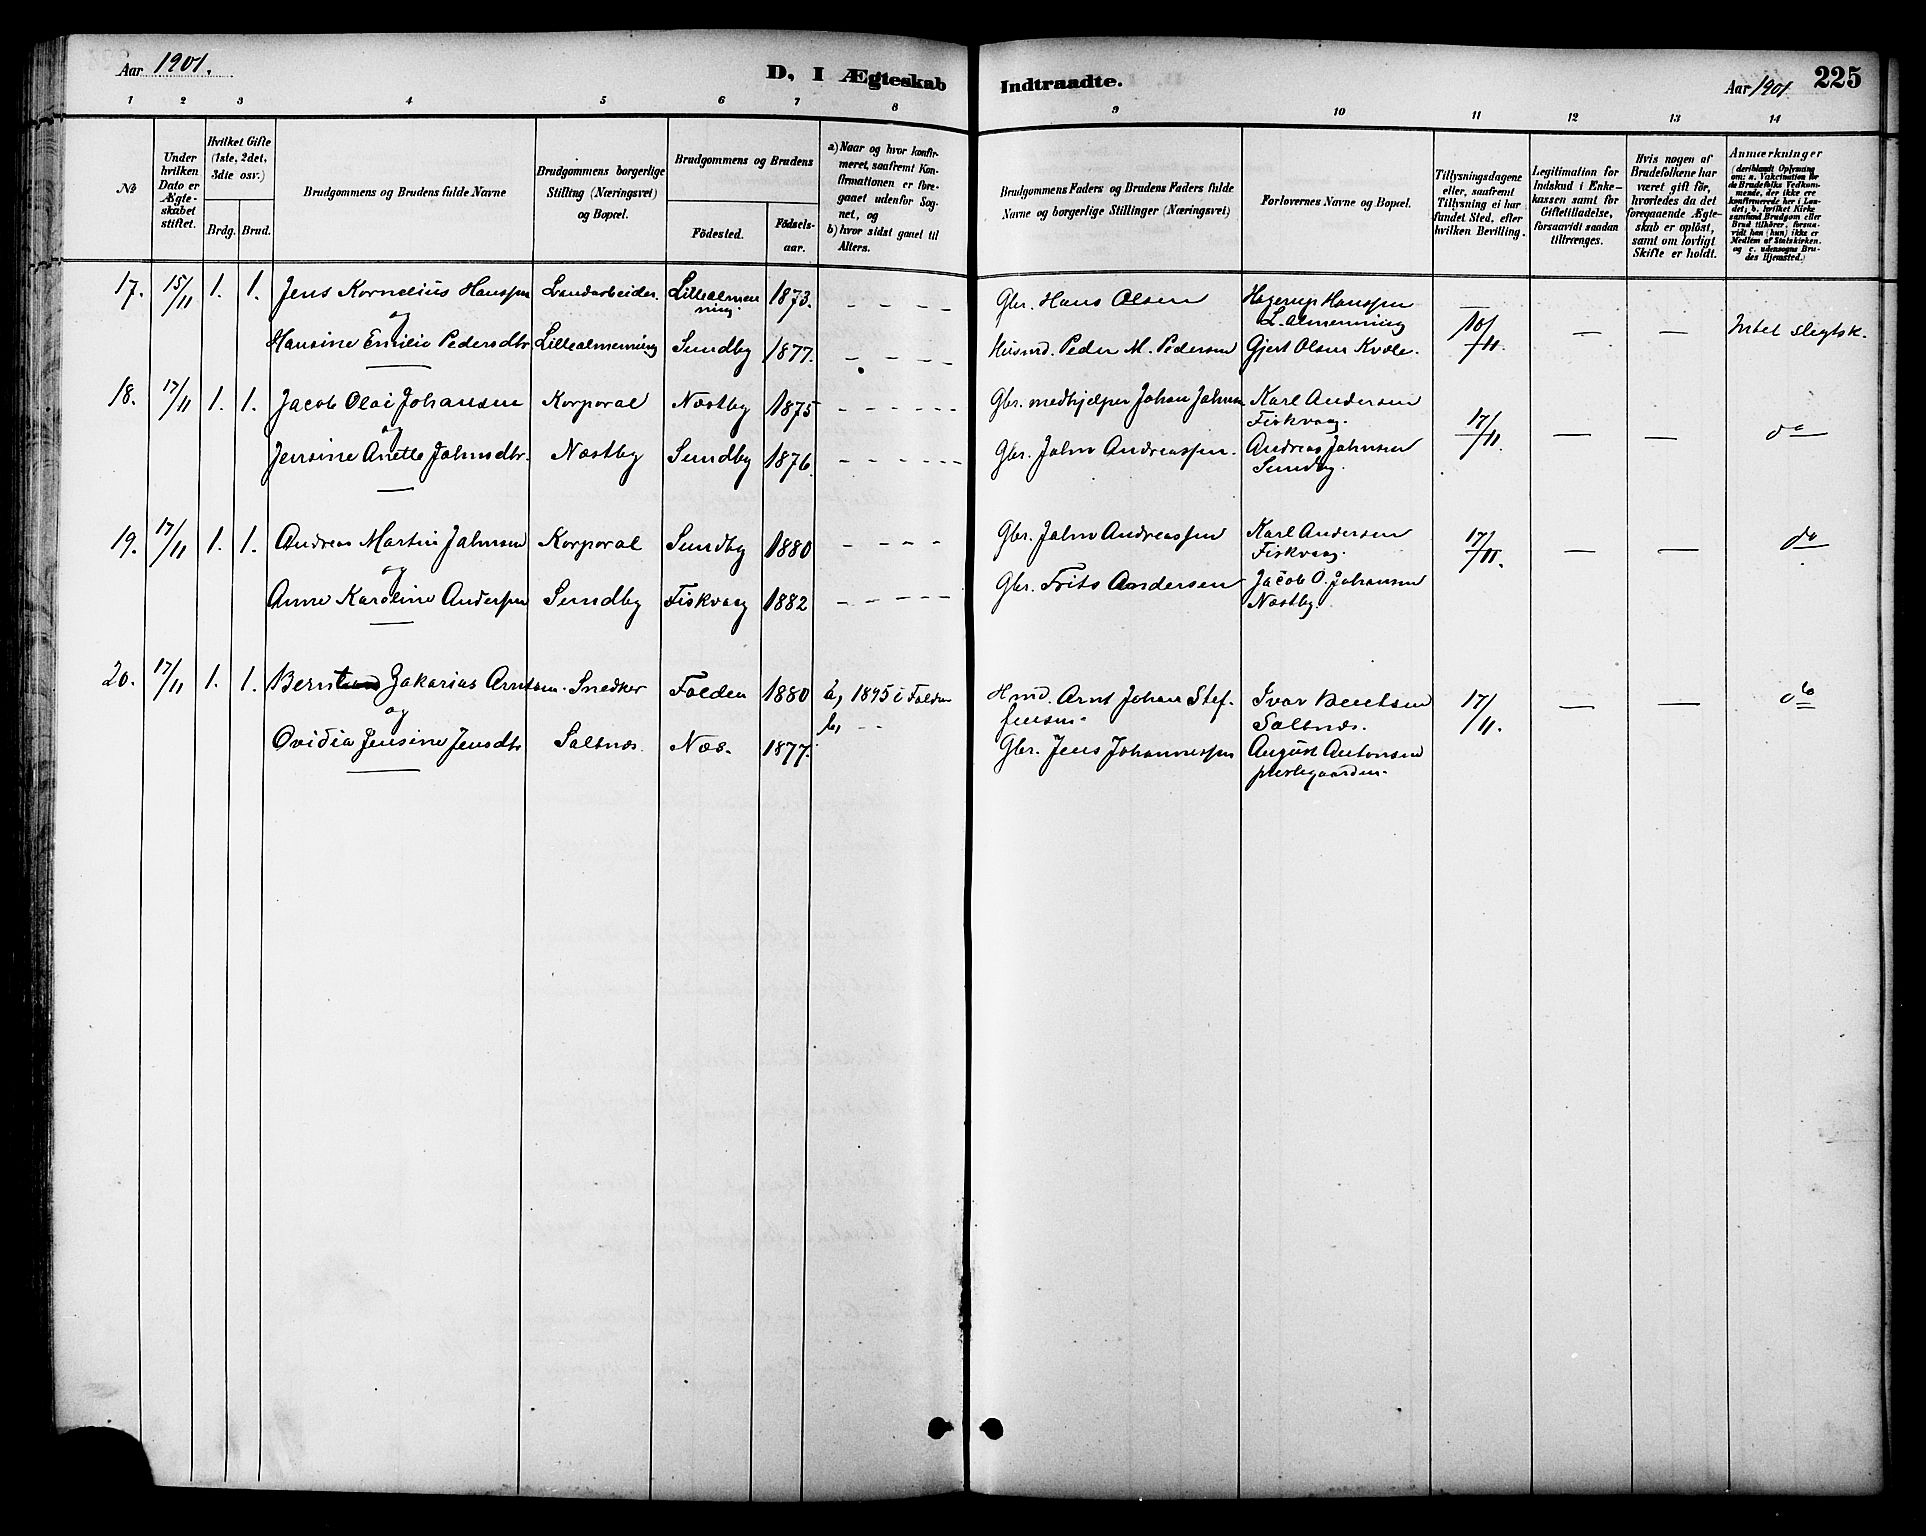 Aar 1901.
D, I Ægteskab
Indtraadte.
Aar 1901
225
1 2 3 4 5 6 7 8 9 10 11 12 13 14
No
Under hvilken Dato er Ægteskabet stiftet.
Hvilket Gifte (1ste, 2det, 3die osv.)
Brdg. Brud.
Brudgommens og Brudens fulde Navne
Brudgommens borgerlige Stilling (Næringsvei) og Bopæl.
Brudgommens og Brudens
Födested.
Födselsaar.
a) Naar og hvor konfirmeret, saafremt Konfirmationen er foregaaet udenfor Sognet, og
b) hvor sidst gaaet til Alters.
Brudgommens Faders og Brudens Faders fulde Navne og borgerlige Stillinger (Næringsvei)
Forlovernes Navne og Bopæl.
Tillysningsdagene eller, saafremt Tillysning ei har fundet Sted, efter hvilken Bevilling.
Legitimation for Indskud i Enkekassen samt for Giftetilladelse, forsaavidt saadan tiltrænges.
Hvis nogen af Brudefolkene har været gift för, hvorledes da det foregaaende Ægteskab er oplöst, samt om lovligt Skifte er holdt.
Anmærkninger
(deriblandt Oplysning om: a. Vakcination for de Brudefolks Vedkommende, der ikke ere konfirmerede her i Landet; b. hvilket Kirkesamfund Brudgom eller Brud tilhörer, forsaavidt han (hun) ikke er Medlem af Statskirken, og c. udensogns Brudes Hjemsted.)
17. 15/11 1. 1. Jens Kornelius Hanssen Landarbeider Lillealmenning. 1873. — — — — Gbr. Hans Olsen Hagerup Hanssen L. almenning
og
Hansine Emilie Pedersdtr Lillealmenning Sundby 1877. — — — — Husmd. Peder M. Pedersen Gjert Olsen Kvæle. 10/11. — — Intet slegtsk.
18. 17/11 1. 1. Jacob Olai Johansen Korporal Næstby 1875 — — — — Gbr. medhjælper Johan Jahnsen Karl Andersen Fiskvaag.
og
Jensine Anette Jahnsdtr. Næstby Sundby 1876. — — — — Gbr. Jahn Andreassen. Andreas Jahnsen Sundby. 17/11. — — do
19. 17/11 1. 1. Andreas Martin Jahnsen Korporal Sundby 1880 — — — — Gbr. Jahn Andreassen Karl Andersen Fiskvaag.
og
Anne Karoline Anderssen Sundby Fiskvaag 1882 — — — — Gbr. Frits Andersen Jacob O. Johansen Næstby. 17/11. — — do
20. 17/11 1. 1. Bernt Zakarias Arntsen. Snedker Folden 1880 a, 1895 i Folden Hmd. Arnt Johan Steffensen. Ivar Bentsen Saltnæs.
og
Ovidia Jensine Jensdtr Saltnæs. Næs. 1877. b, — — Gbr. Jens Johannessen August Antonsen prestegaarden. 17/11. — — do